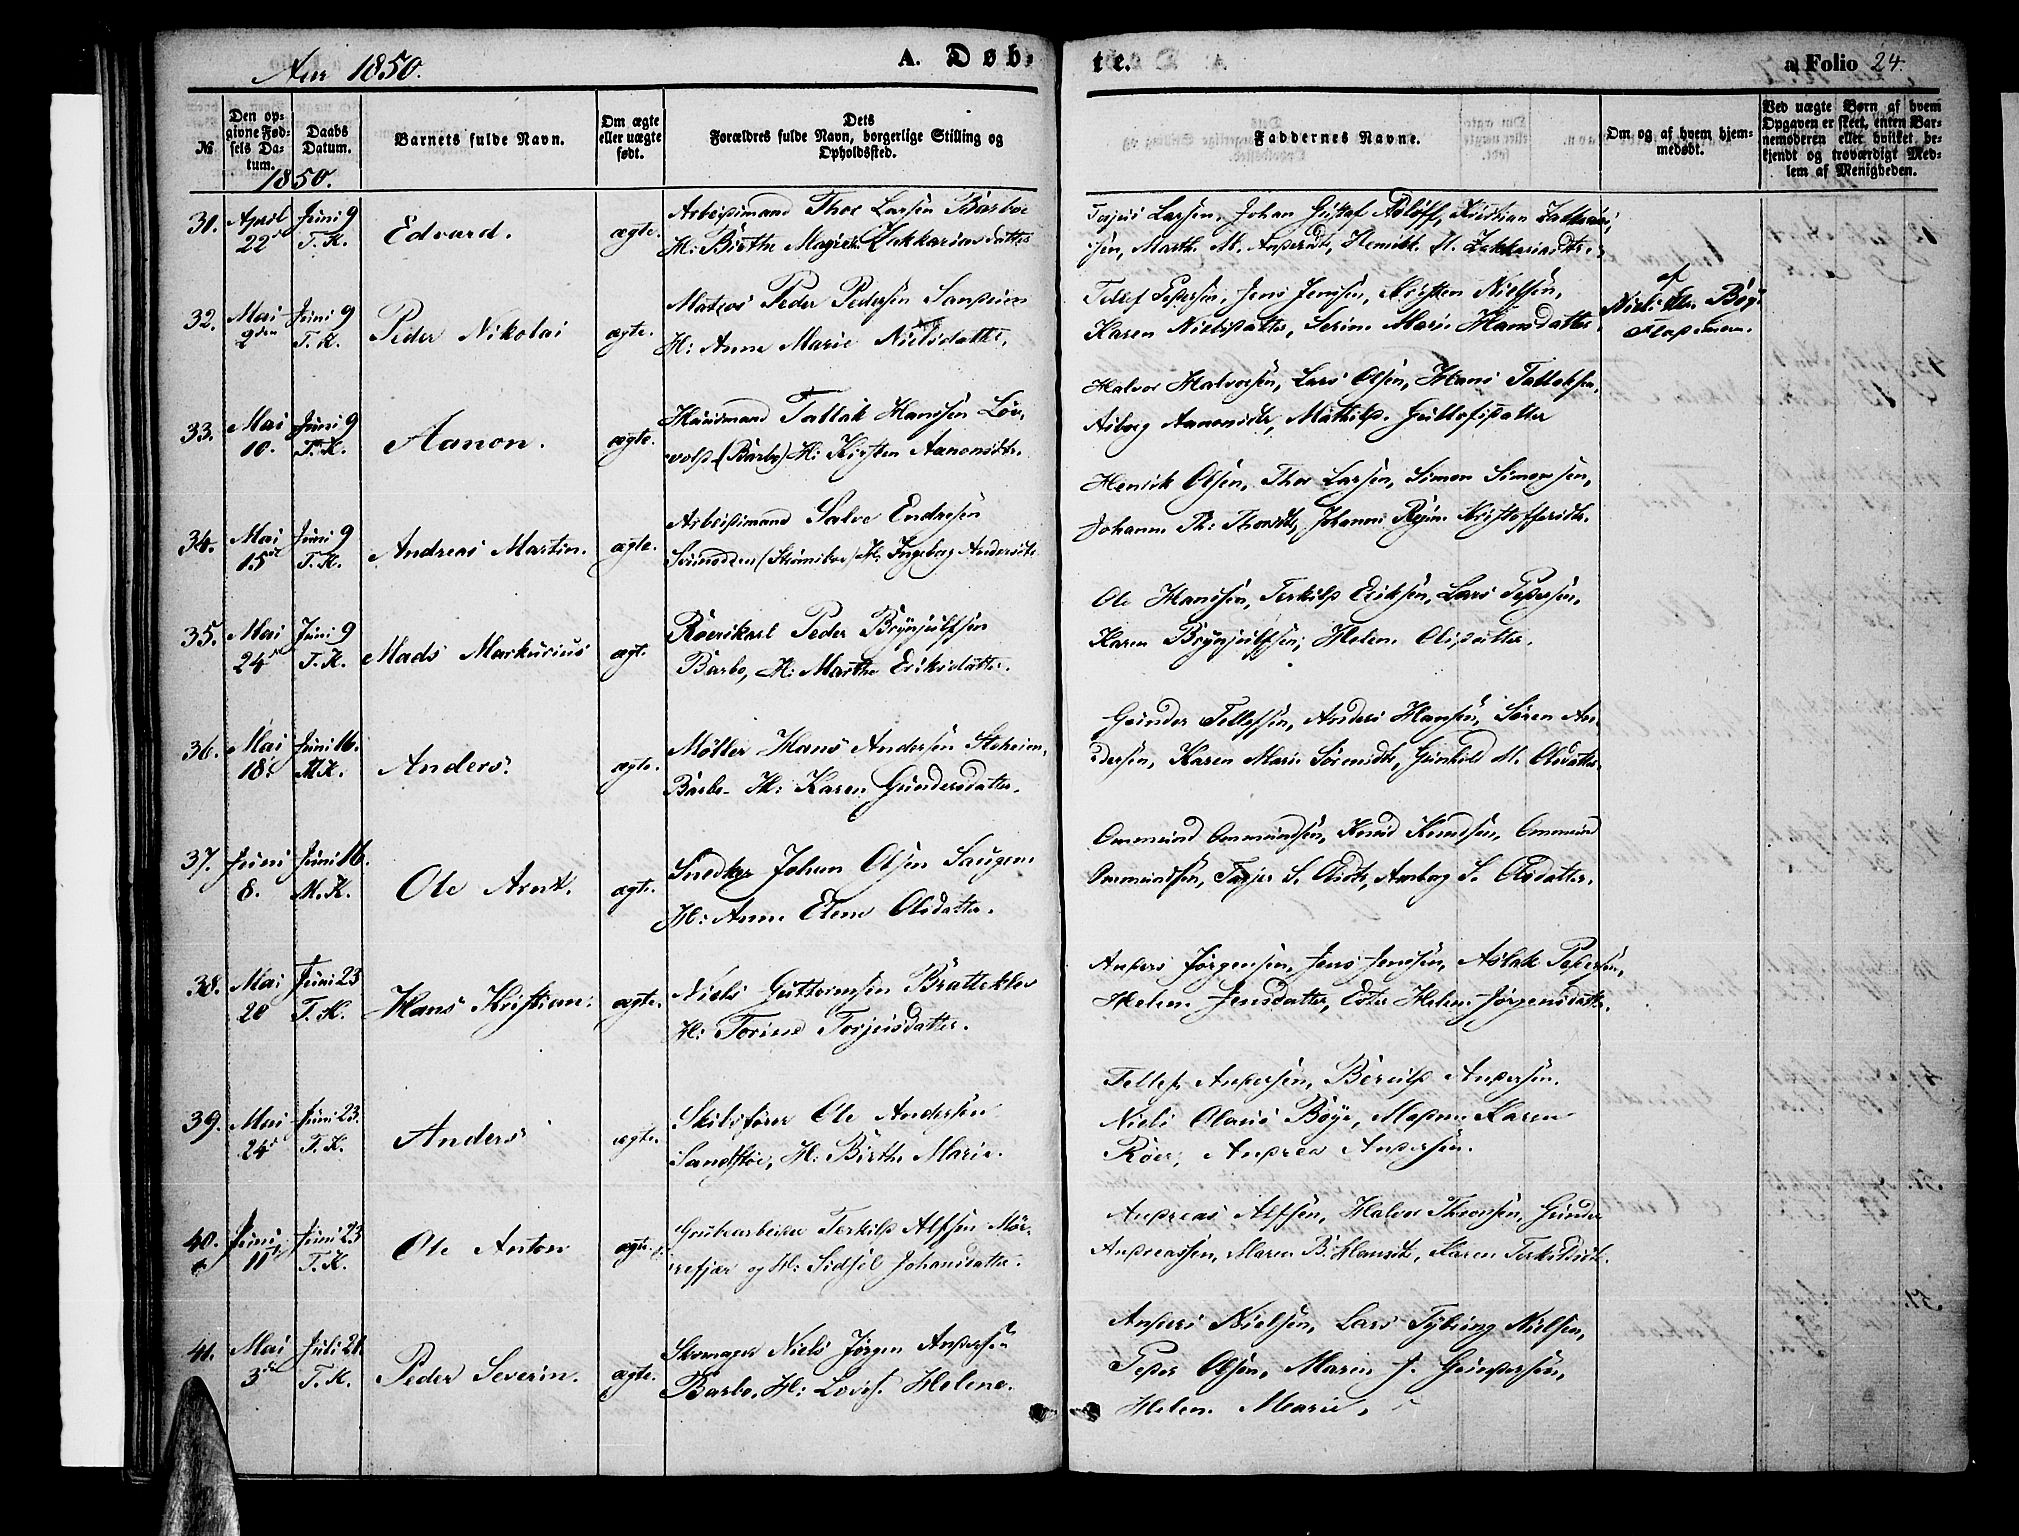 Aar 1850.
A. Døb-
te.
a Folio 24.
№
Den op-
givne Fød-
sels Da-
tum.
Daabs
Datum.
Barnets fulde Navn.
Om ægte
eller uægte
født.
Dets
Forældres fulde Navn, borgerlige Stilling og
Opholdssted.
Faddernes Navne.
Om og af hvem hjem-
medøbt.
Ved uægte Børn af hvem
Opgaven er skeet, enten Bar-
nemoderen eller hvilket be-
kjendt og troværdigt Med-
lem af Menigheden.
1850.
31. April 22 Juni 9 T. K. Edvard. ægte.
Arbeidsmand Thor Larsen Barboe
H: Birthe Zakkariasdatter
Larsen, Johan Gustaf Kristian
sen, Marth. M.
32. Mai 2den Juni 9 T. K. Peder Nikolai ægte.
Matros Peder Pedersen
H: Anne Marie Nielsdatter,
Tellef Pedersen, Jens Jensen, Kirsten Nielsen,
Karen Nielsdatter, Serine Marie Hansdatter.
af
33. Mai 10. Juni 9 T. K. Aanon. ægte.
Huusmand Tallak Hansen Løv-
vold (Barbo) H: Kirsten Aanonsdtr.
Halvor Halvorsen, Lars Olsen, Hans Tallaksen,
Asborg Aanonsdtr,
34. Mai 15de Juni 9 T. K. Andreas Martin. ægte.
Arbeidsmand Salve Endresen
H: Ingeborg Andersdtr
Henrik Olsen, Thor Larsen, Simon Simonsen,
Johanne Th: Thorsdtr, Johanne Kristoffersdtr.
35. Mai 24de Juni 9 T. K. Mads Markurius ægte.
Røerskarl Peder Brynjulfsen
Barbo, H: Marthe Eriksdatter.
Ole Hansen, Terkild Eriksen, Lars Pedersen,
Karen Brynjulfsen, Helene Olisdatter.
36. Mai 18. Juni 16. M.K. Anders. ægte.
Møller Hans Andersen Steheien,
Barbo. H: Karen Gundersdatter.
Gunder Tellefsen, Anders Hansen, Søren An-
dersen, Karen Marie Sørensdtr, Gunhild M. Olsdatter.
37. Juni 8. Juni 16. M.K. Ole Arnt. ægte.
Snedker Johan Olsen Saugene
H: Anne Elene Olsdatter.
Ommund Ommundsen, Knud Knudsen, Ommund
Ommundsen, S. Olsdtr, Anborg S. Olsdatter.
38. Mai 20 Juni 23 T. K. Hans Kristian. ægte.
Niels Guttormsen Bratteklev
H: Torine Torjusdatter.
Anders Jørgensen, Jens Jensen, Aslak Pedersen,
Helene Jensdatter, Helene Jørgensdatter.
39. Mai 24de Juni 23. T. K. Anders ægte.
Skibsfører Ole Andersen
H: Birthe Marie.
Tellef Andersen, Berulf Andersen.
Niels Olaus Bøye, Madme Karen
Røer, Andrea Andersen.
40. Juni 11te Juni 23 T. K. Ole Anton ægte.
Grubearbeider Terkild Alfsen Mør-
refjær og H: Sidsel Johansdatter.
Andreas Alfsen, Halvor Gunder
Andreassen, Maren B. Hansdtr, Karen Terkildsdtr.
41. Mai 3de Juli 21 T. K. Peder Severin. ægte.
Skomager Niels Jørgen Andersen
Barbo, H: Helene.
Anders Nielsen, Lars Tybring Nielsen,
Peder Olsen, Maren J. Gundersen,
Helene Marie,